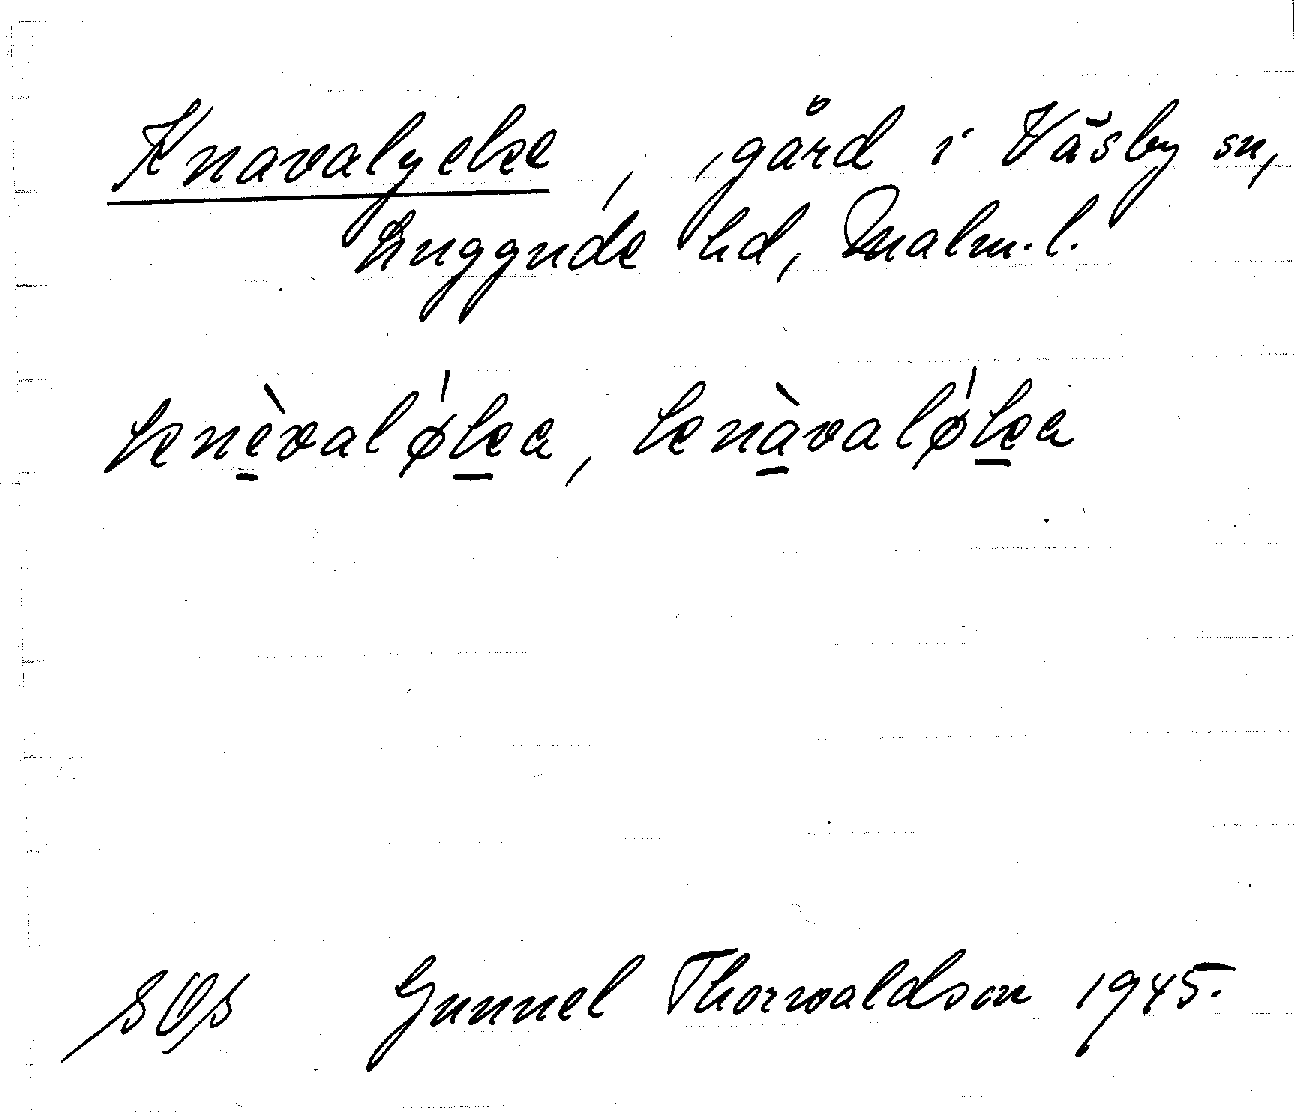 Knavalycke, gård i Väsby sn,
Luggude hd, Malm. l.
knèvalǿka, knàvalǿka
SOS Gunnel Thorwaldson 1945.